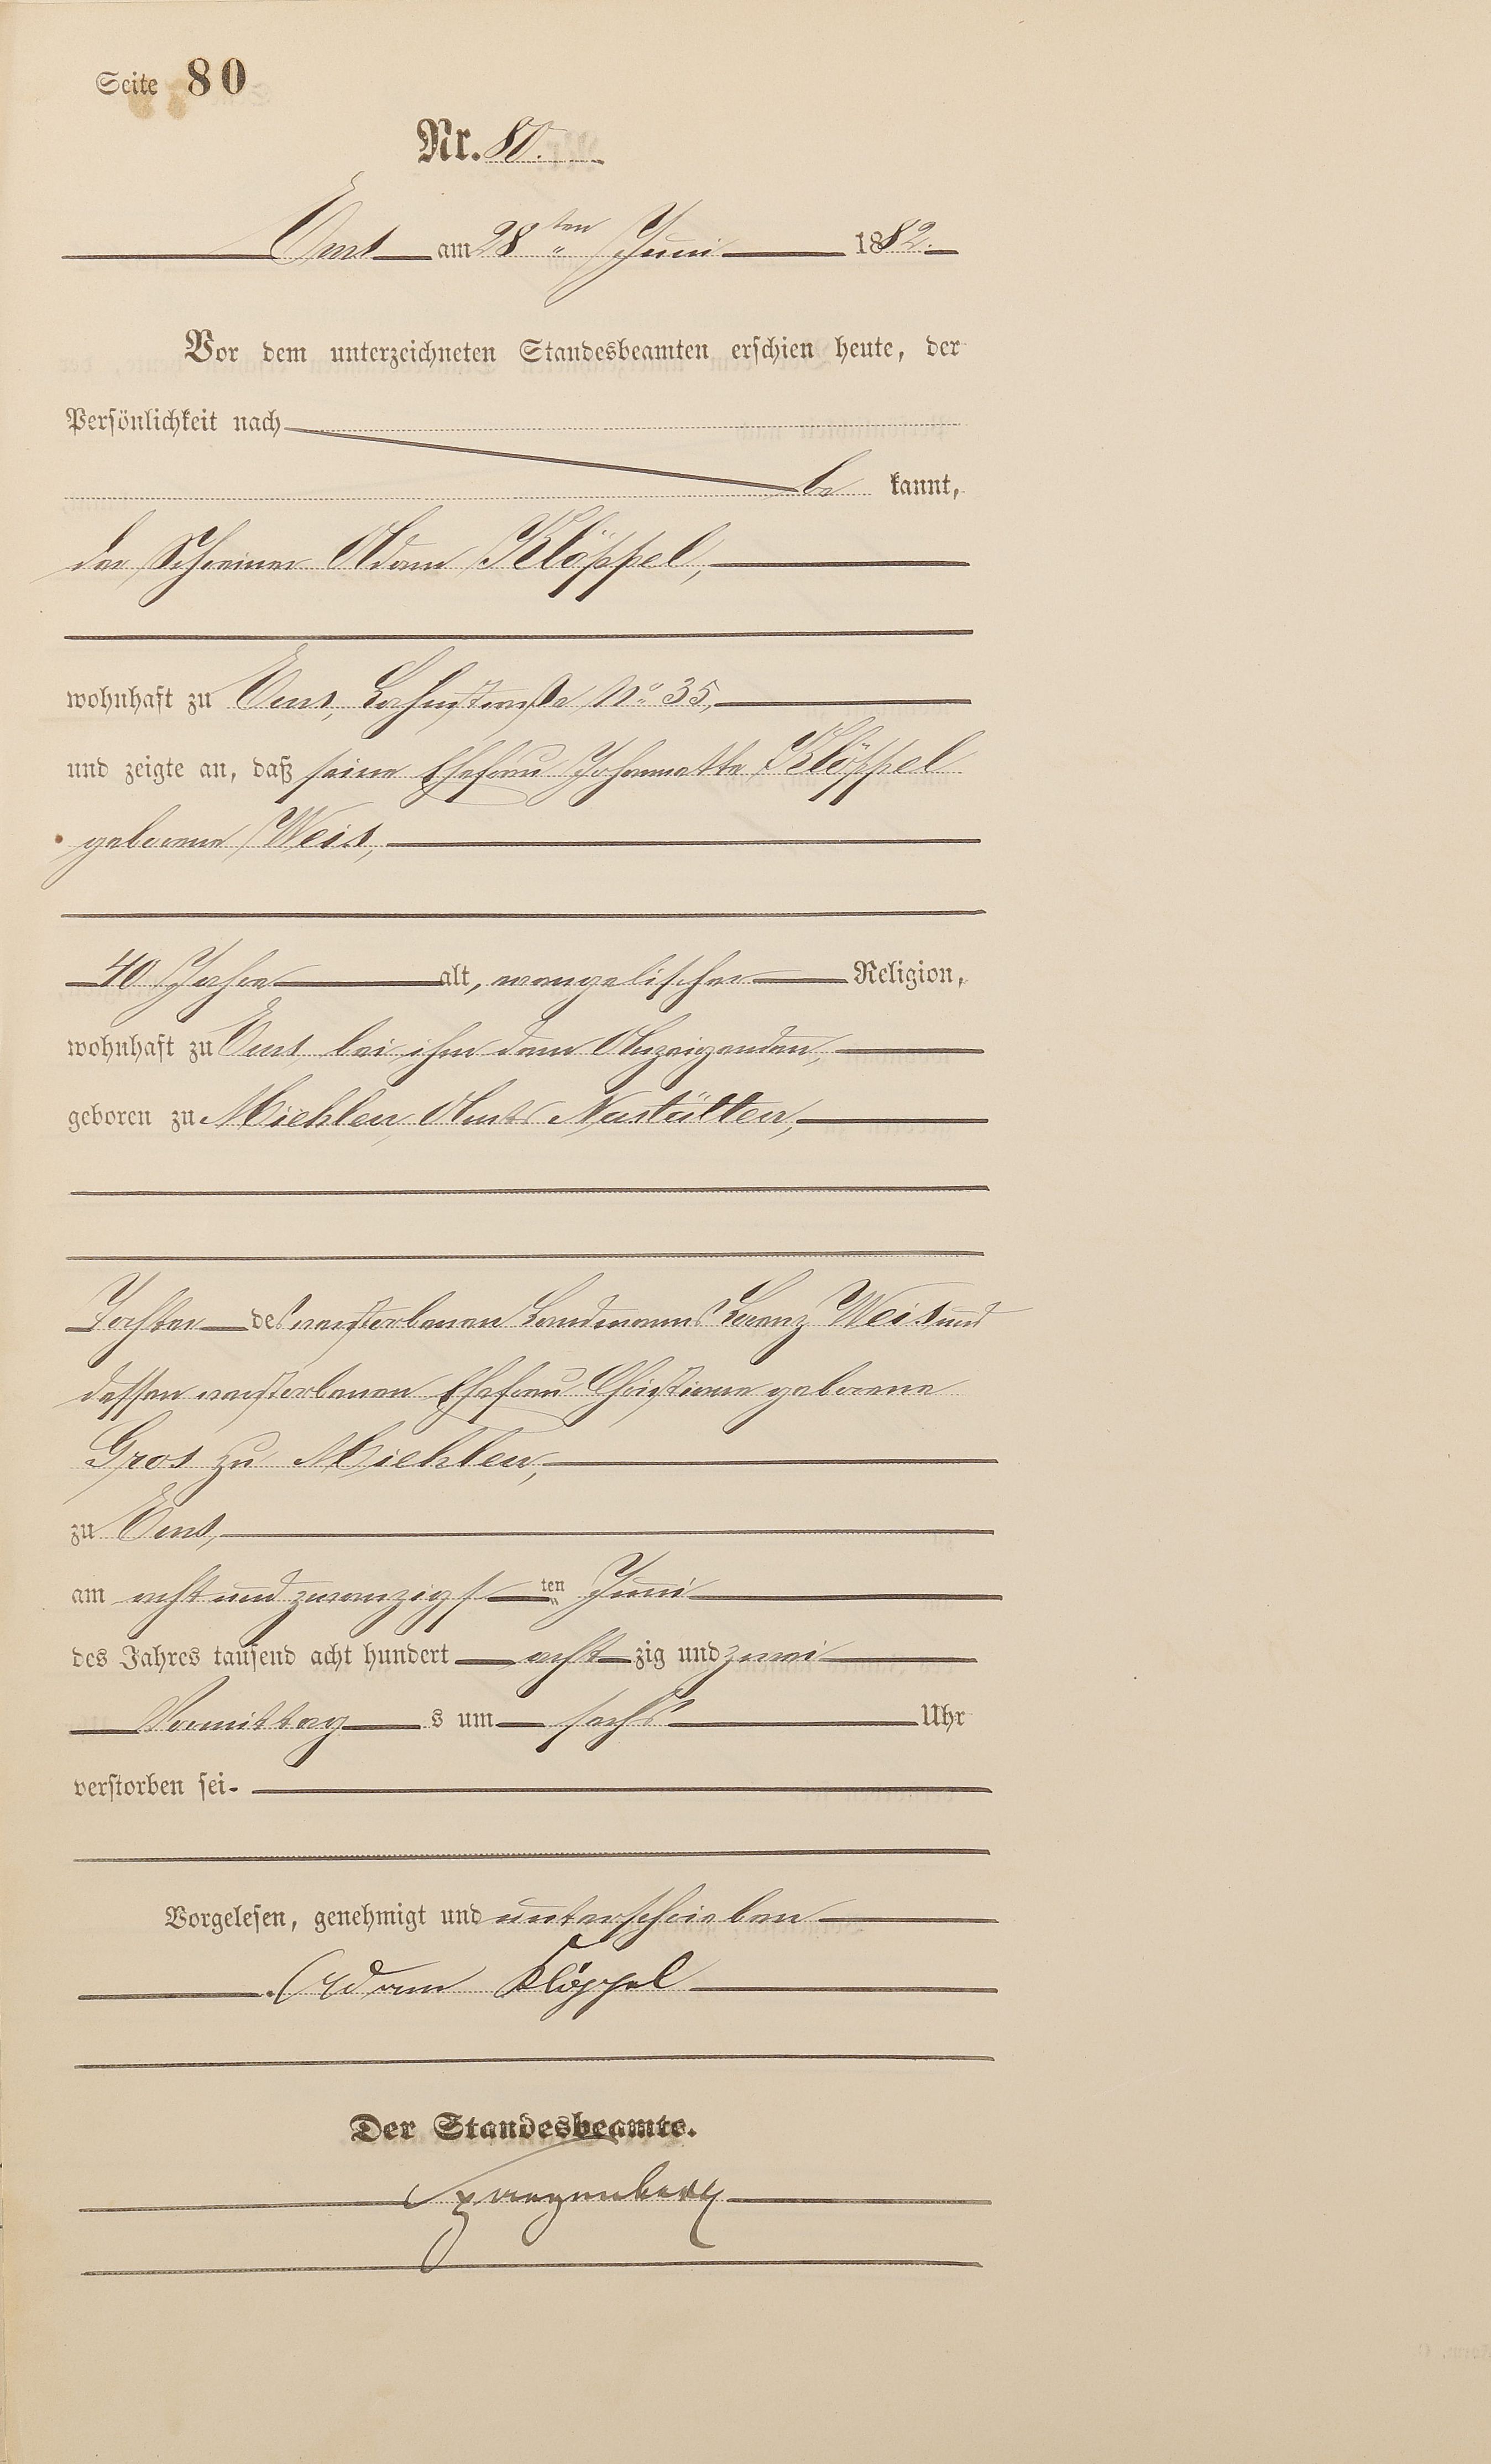 Seite 80
Nr. 80.
Ems am 28ten Juni 1882.
Vor dem unterzeichneten Standesbeamten erschien heute, der
Persönlichkeit nach
be kannt,
der Schreiner Adam Klöppel,
wohnhaft zu Ems, Lahnstraße No. 35,
und zeigte an, daß seine Ehefrau Johannette Klöppel
geborene Weis,
40 Jahre alt, evangelischer Religion,
wohnhaft zu Ems bei ihm dem Anzeigenden,
geboren zu Miehlen, Amts Nastätten,
Tochter des verstorbenen Landmanns Lorenz Weis und
dessen verstorbenen Ehefrau Christiane geborene
Gros zu Miehlen,
zu Ems,
am acht und zwanzigsten Juni
des Jahres tausend acht hundert acht zig und zwei
Vormittag s um sechs Uhr
verstorben sei.
Vorgelesen, genehmigt und unterschrieben
Adam Klöppel
Der Standesbeamte.
Spangenberg